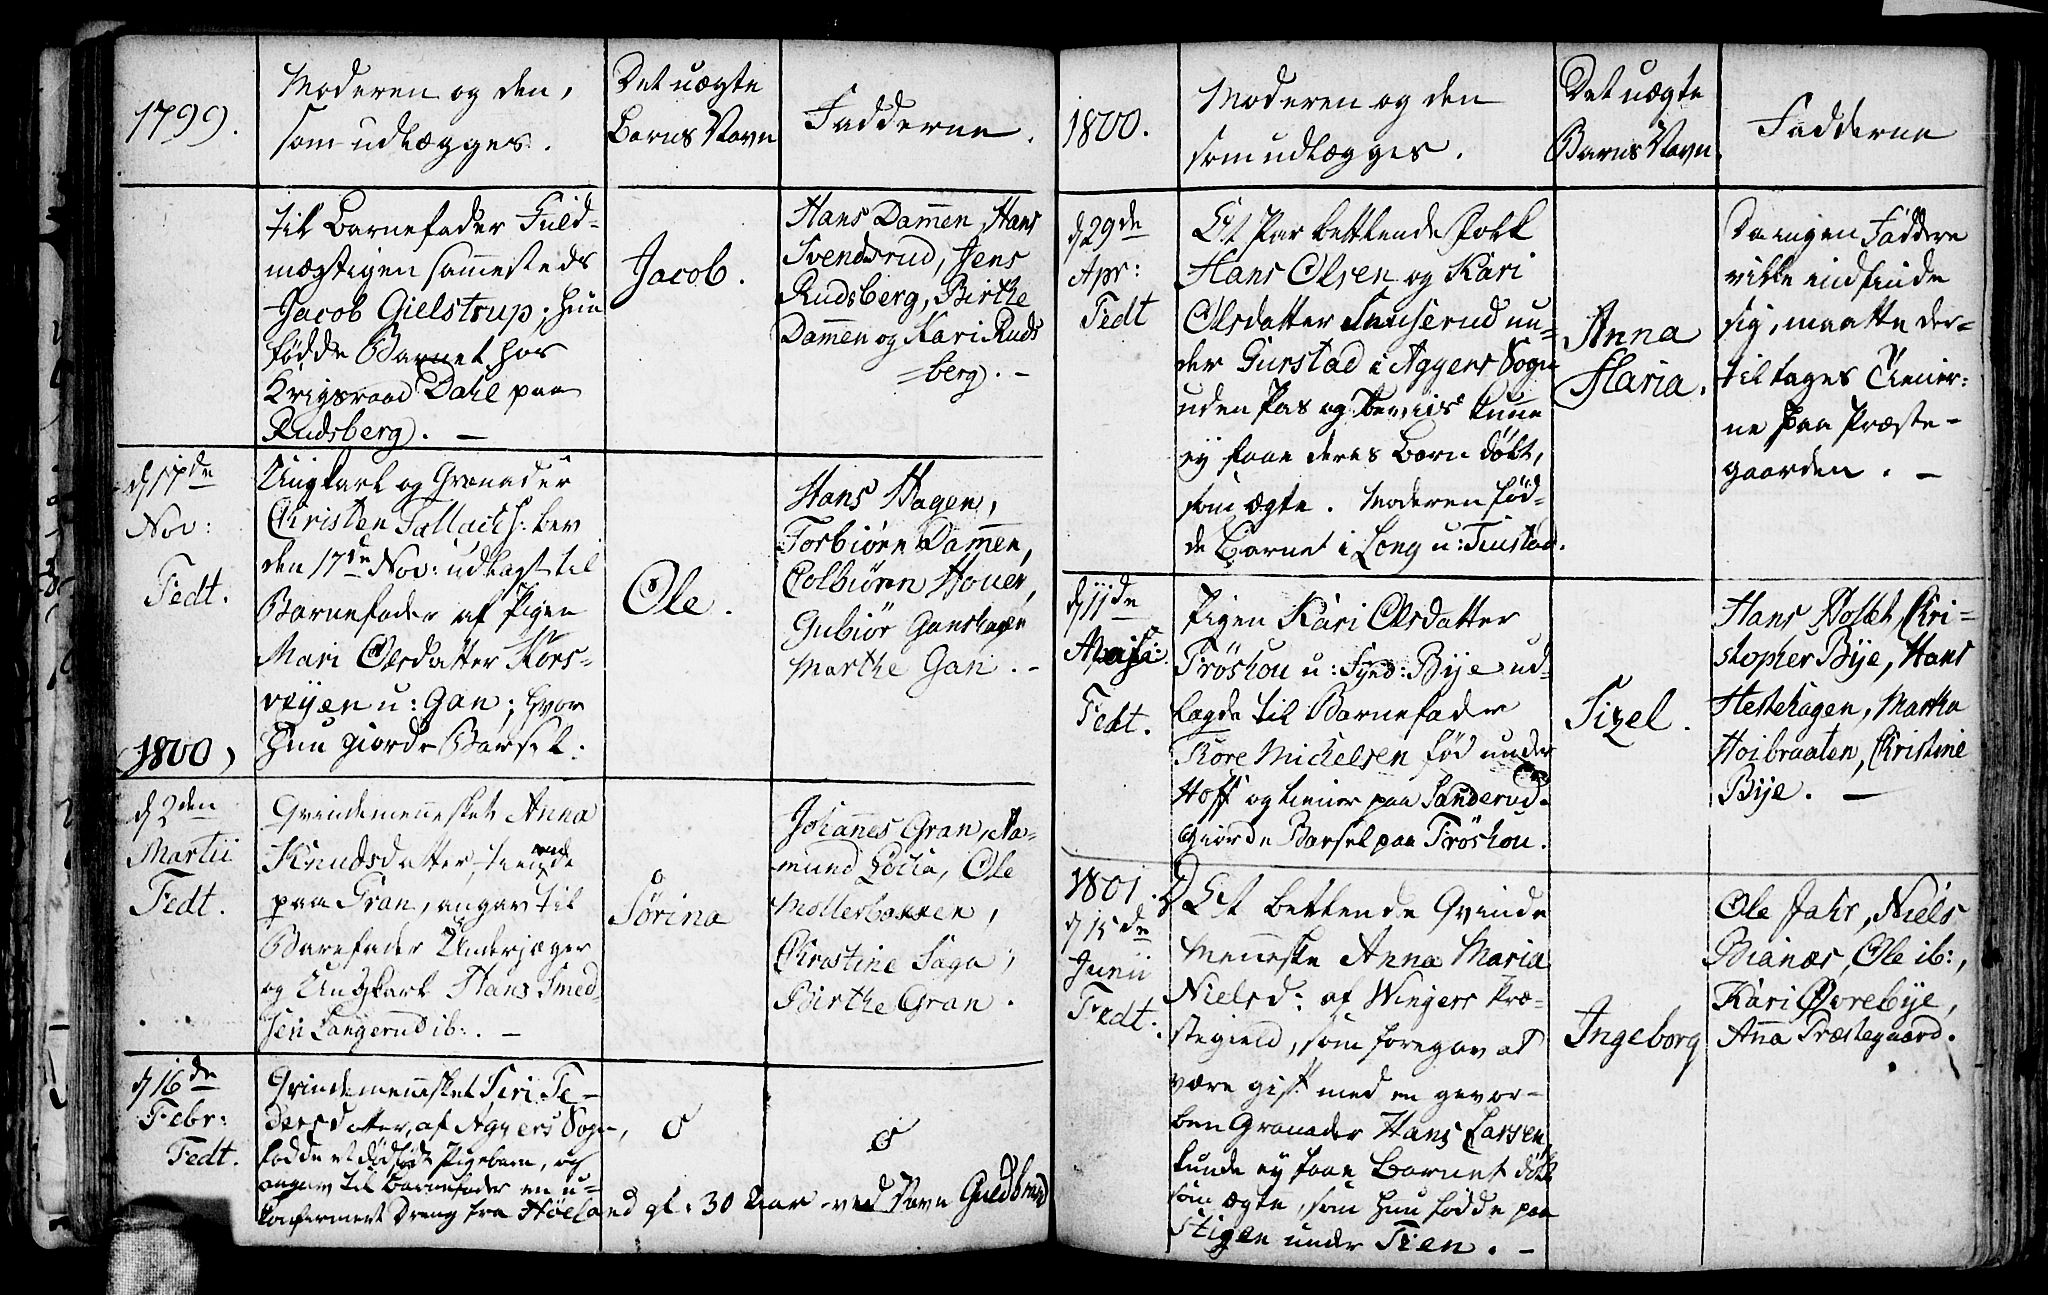 1799.
Moderen og den,
som udlægges.
Det uægte
Barns Navn
Fadderne.
til Barnefader Fuld-
mægtigen sammesteds
Jacob Gielstrup; hun
fødde Barnet hos
Krigsraad Dahl paa
Rudsberg. —
Jacob.
Hans Dam̄en, Hans
Svendsrud, Jens
Rudsberg, Birthe
Dam̄en og Kari Ruds
=berg. —
d 17de
Nov:
Fedt.
Ungkarl og Grenader
Christen Tallachs: blev
den 17de Nov: udlagt til
Barnefader af Pigen
Mari Olsdatter Kors-
vejen u: Gan; hvor
hun giorde Barsel.
Ole.
Hans Hagen,
Torbiörn Dam̄en,
Colbiörn Houer,
Gubiör Ganshagen
Marthe Gan. —
1800,
d 2den
Martii
Fedt.
Qvindemen̄esket Anna
Knudsdatter, tienende
paa Gran, angav til
Barefader Underjæger
og Ungkarl Hans Smed-
sen Langerud ib: —
Sørina
Johan̄es Gran, Aa-
mund Løcia, Ole
Møllerbakken,
Christine Saga,
Birthe Gran.
d 16de
Febr:
Fedt.
Qvindemen̄esket Siri Pe-
dersdatter, af Aggers Sogn,
fødde et dødfødt Pigebarn, og
angav til Barnefader en u-
konfirmert Dreng fra Höeland gl. 30 Aar ved Navn Guldbrand
1800.
Moderen og den
som udlægges.
Det uægte
Barns Navn
Fadderne
d 29de
Apr:
Fedt
Et Par betlende Folk
Hans Olsen og Kari
Olsdatter un-
der Gurstad i Aggers Sogn
uden Pas og Beviis kun̄e
ey faae deres Barn døbt,
som ægte. Moderen fød-
de Barnet i Long u: Tiustad.
Anna
Maria.
Da ingen Faddere
ville indfinde
sig, maatte der-
til tages Tiener-
ne paa Præste-
gaarden. —
d 11de
Maji:
Fedt.
Pigen Kari Olsdatter
Tröshou u: Synd: Bye ud-
lagde til Barnefader
Tore Michelsen fød under
Hoff og tiener paa Sanderud.
Giorde Barsel paa Tröshou.
Sizel.
Hans Nollet, Chri-
stopher Bije, Hans
Hestehagen, Martha
Hoibraaten, Christine
Bije. —
1801.
d 15de
Junii
Fedt.
Et betlende Qvinde
Men̄eske Anna Maria
Nielsd: af Wingers Præ-
stegield, som foregav at
være gift med en gevor-
ben Granader Hans Larsen,
kunde ey faae Barnet døbt
som ægte, som hun fødde paa
Stigen under Tien. —
Ingeborg
Ole Jahr, Niels
Bianæs, Ole ib:,
Kari Øvrebye,
An̄a Præstegaard.